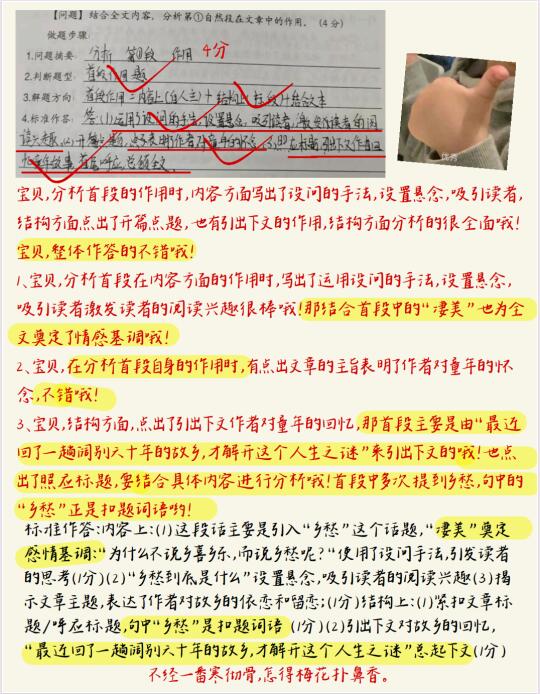 【问题】结合全文内容，分析第①自然段在文章中的作用。(4分)
做题步骤:
1.问题摘要: 分析 第①段 作用 4分
2.判断题型: 首段作用题
3.解题方向: 首段作用=内容上(自人主)+结构上
4.标准作答: 答:(1)运用了设问的手法,设置悬念,吸引读者,激发读者的阅
读兴趣
优秀
宝贝,分析首段的作用时,内容方面写出了设问的手法,设置悬念,吸引读者,
结构方面点出了开篇点题,也有引出下文的作用,结构方面分析的很全面哦!
宝贝,整体作答的不错哦!
1、宝贝,分析首段在内容方面的作用时,写出了运用设问的手法,设置悬念,
吸引读者激发读者的阅读兴趣很棒哦!那结合首段中的“凄美”也为全
文奠定了情感基调哦!
2、宝贝,在分析首段自身的作用时,有点出文章的主旨表明了作者对童年的怀
念,不错哦!
3、宝贝,结构方面,点出了引出下文作者对童年的回忆,那首段主要是由“最近
回了一趟阔别六十年的故乡,才解开这个人生之谜”来引出下文的哦!也点
出了照应标题,要结合具体内容进行分析哦!首段中多次提到乡愁,句中的
“乡愁”正是扣题词语哟!
标准作答:内容上:(1)这段话主要是引入“乡愁”这个话题,“凄美”奠定
感情基调:“为什么不说乡喜乡乐,而说乡愁呢?”使用了设问手法,引发读者
的思考(1分)(2)“乡愁到底是什么”设置悬念,吸引读者的阅读兴趣(3)揭
示文章主题,表达了作者对故乡的依恋和留恋;(1分)结构上:(1)紧扣文章标
题/呼应标题,句中“乡愁”是扣题词语(1分)(2)引出下文对故乡的回忆,
“最近回了一趟阔别六十年的故乡,才解开这个人生之谜”总起下文(1分)
不经一番寒彻骨,怎得梅花扑鼻香。